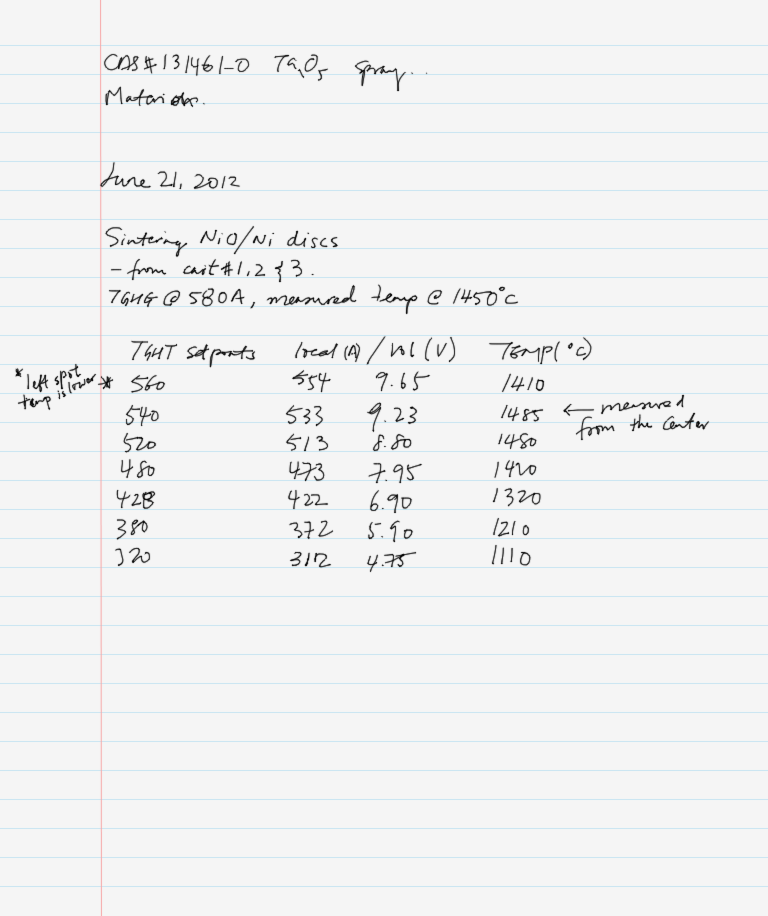 CAS# 131461-0 Ta₁O₅ spray..
Materials.
June 21, 2012
Sintering NiO/Ni discs
- from cast #1, 2 & 3.
TGHG @ 580A, measured temp @ 1450°C
TGHT setpoints local (A) / Vol (V) TEMP (°C)
* left spot temp is lower
* 560 554 9.65 1410
540 533 9.23 1485 ← measured from the center
520 513 8.80 1480
480 473 7.95 1420
428 422 6.90 1320
380 372 5.90 1210
320 312 4.75 1110